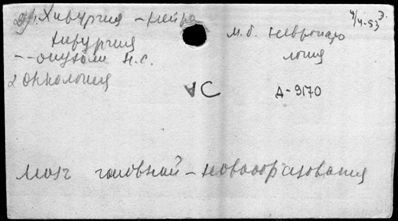 Хирургия - нейро
хирургия
-- опухоли н.с.
2 Онкология
м.б. Невропато
логия
4/4-53
АС
Д-9170
мозг головной - новообразования